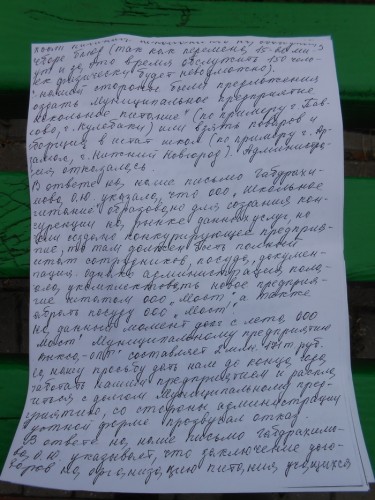 чего блюд (так как перемена 15-20 мин
ут и за это время обслужить 150 чело-
век физически будет невозможно).
нашей стороны были предложения
создать муниципальное предприятие
"Школьное питание" (по примеру г. Пав-
лово, г. Кулебаки) или взять поваров и
уборщиц в штат школ (по примеру г. Ар-
замас, г. Нижний Новгород). Администра-
ция отказалась.
В ответе на наше письмо Габдрахи-
мова О.Ю. указала, что ООО "Школьное
питание" образовано для создания кон-
куренции на рынке данных услуг, но
если создано конкурирующее предприя-
тие, то там должен быть полный
штат сотрудников, посуда, докумен-
тация. Однако администрация
укомплектовать новое предприя-
тие штатом ООО "Мост", а также
забрать посуду ООО "Мост".
На данный момент долг с лета ООО
"Мост" Муниципальному предприятию
"Выкса-опт" составляет 2 млн. руб.
На нашу просьбу дать нам до конца года
работать нашим предприятием и распла-
титься с долгом Муниципальному пред-
приятию, со стороны администрации
в устной форме прозвучал отказ.
В ответе на наше письмо Габдрахимо-
ва О.Ю. указывает, что заключение дого-
воров на организацию питания учащихся